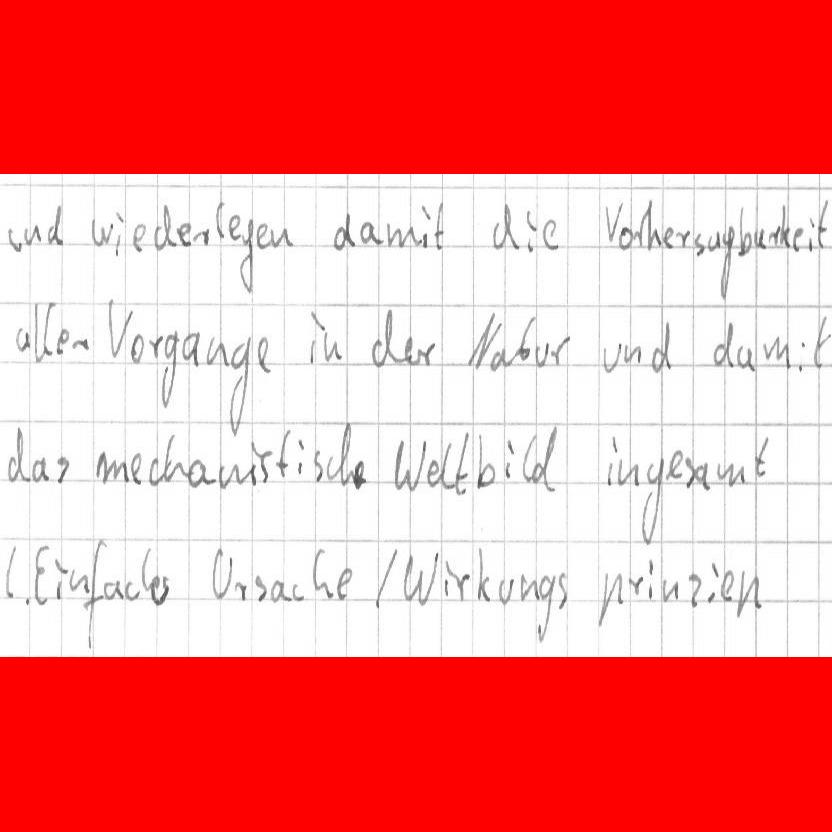 und wiederlegen damit die Vorhersagbarkeit
aller Vorgange in der Natur und damit
das mechanistische Weltbild ingesamt
(.Einfaches Ursache / Wirkungs prinzien